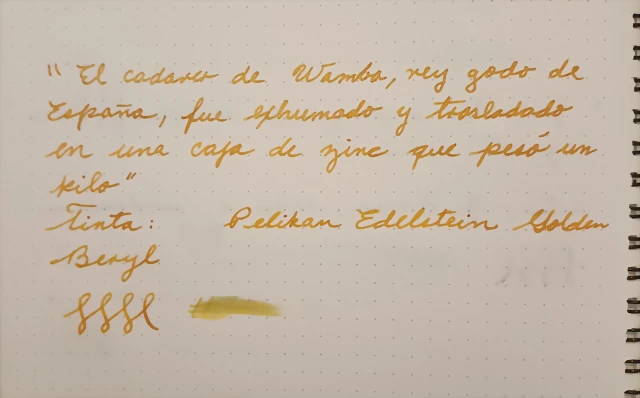 " El cadaver de Wamba, rey godo de
España, fue exhumado y trasladado
en una caja de zinc que pesó un
kilo "
Tinta: Pelikan Edelstein Golden
Beryl